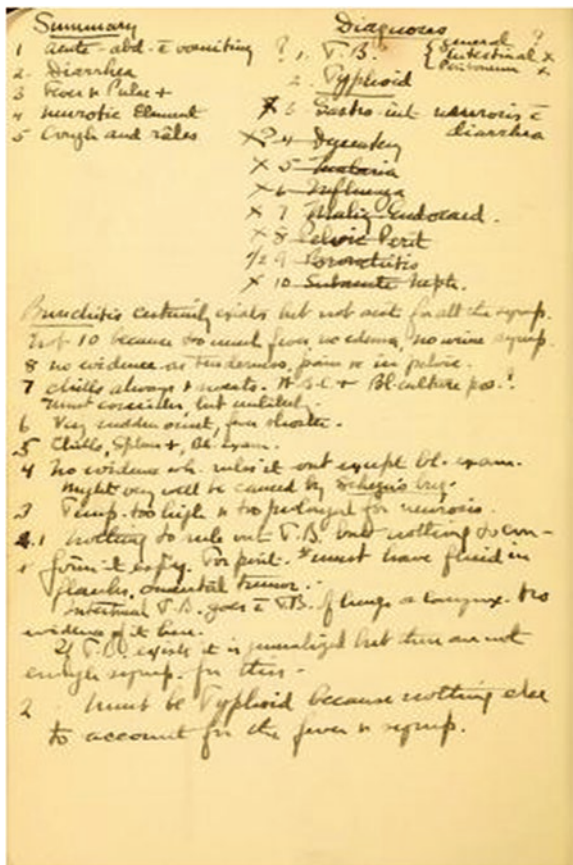 Summary
1 Acute abd. c̄ vomiting
2 Diarrhea
3 Fever & Pulse +
4 Neurotic Element
5 Cough and râles
Diagnosis
? 1. T.B.? { General ?
Intestinal x
Peritoneum x
2. Typhoid
x 3 Gastro-int. neurosis c̄
diarrhea
x? 4 Dysentery
x 5 Malaria
x 6 Influenza
x 7 Malig. Endocard.
x 8 Pelvic Perit
1/2 9 Bronchitis
x 10 Subacute Neph.
Bronchitis certainly exists but not for all the symp.
Not 10 because too much fever, no edema, no urine symp.
8 no evidence as tenderness, pain or in pelvis.
7 chills always & sweats. W.B.C. + Bl. culture pos.?
must consider, but unlikely.
6 Very sudden onset, fever shorter.
5 Chills, Spleen +, Bl. exam.
4 No evidence wh. rules it out except bl. exam.
Might very well be caused by
3 Temp. too high & too prolonged for neurosis.
1 nothing to rule out T.B. but nothing to con-
firm it For perit. must have fluid in
flanks, omental tumor.
Intestinal T.B. goes c̄ T.B. of lungs or larynx. No
evidence of it here.
If T.B. exists it is generalized but there are not
enough symp. for this -
2 Must be Typhoid because nothing else
to account for the fever & symp.